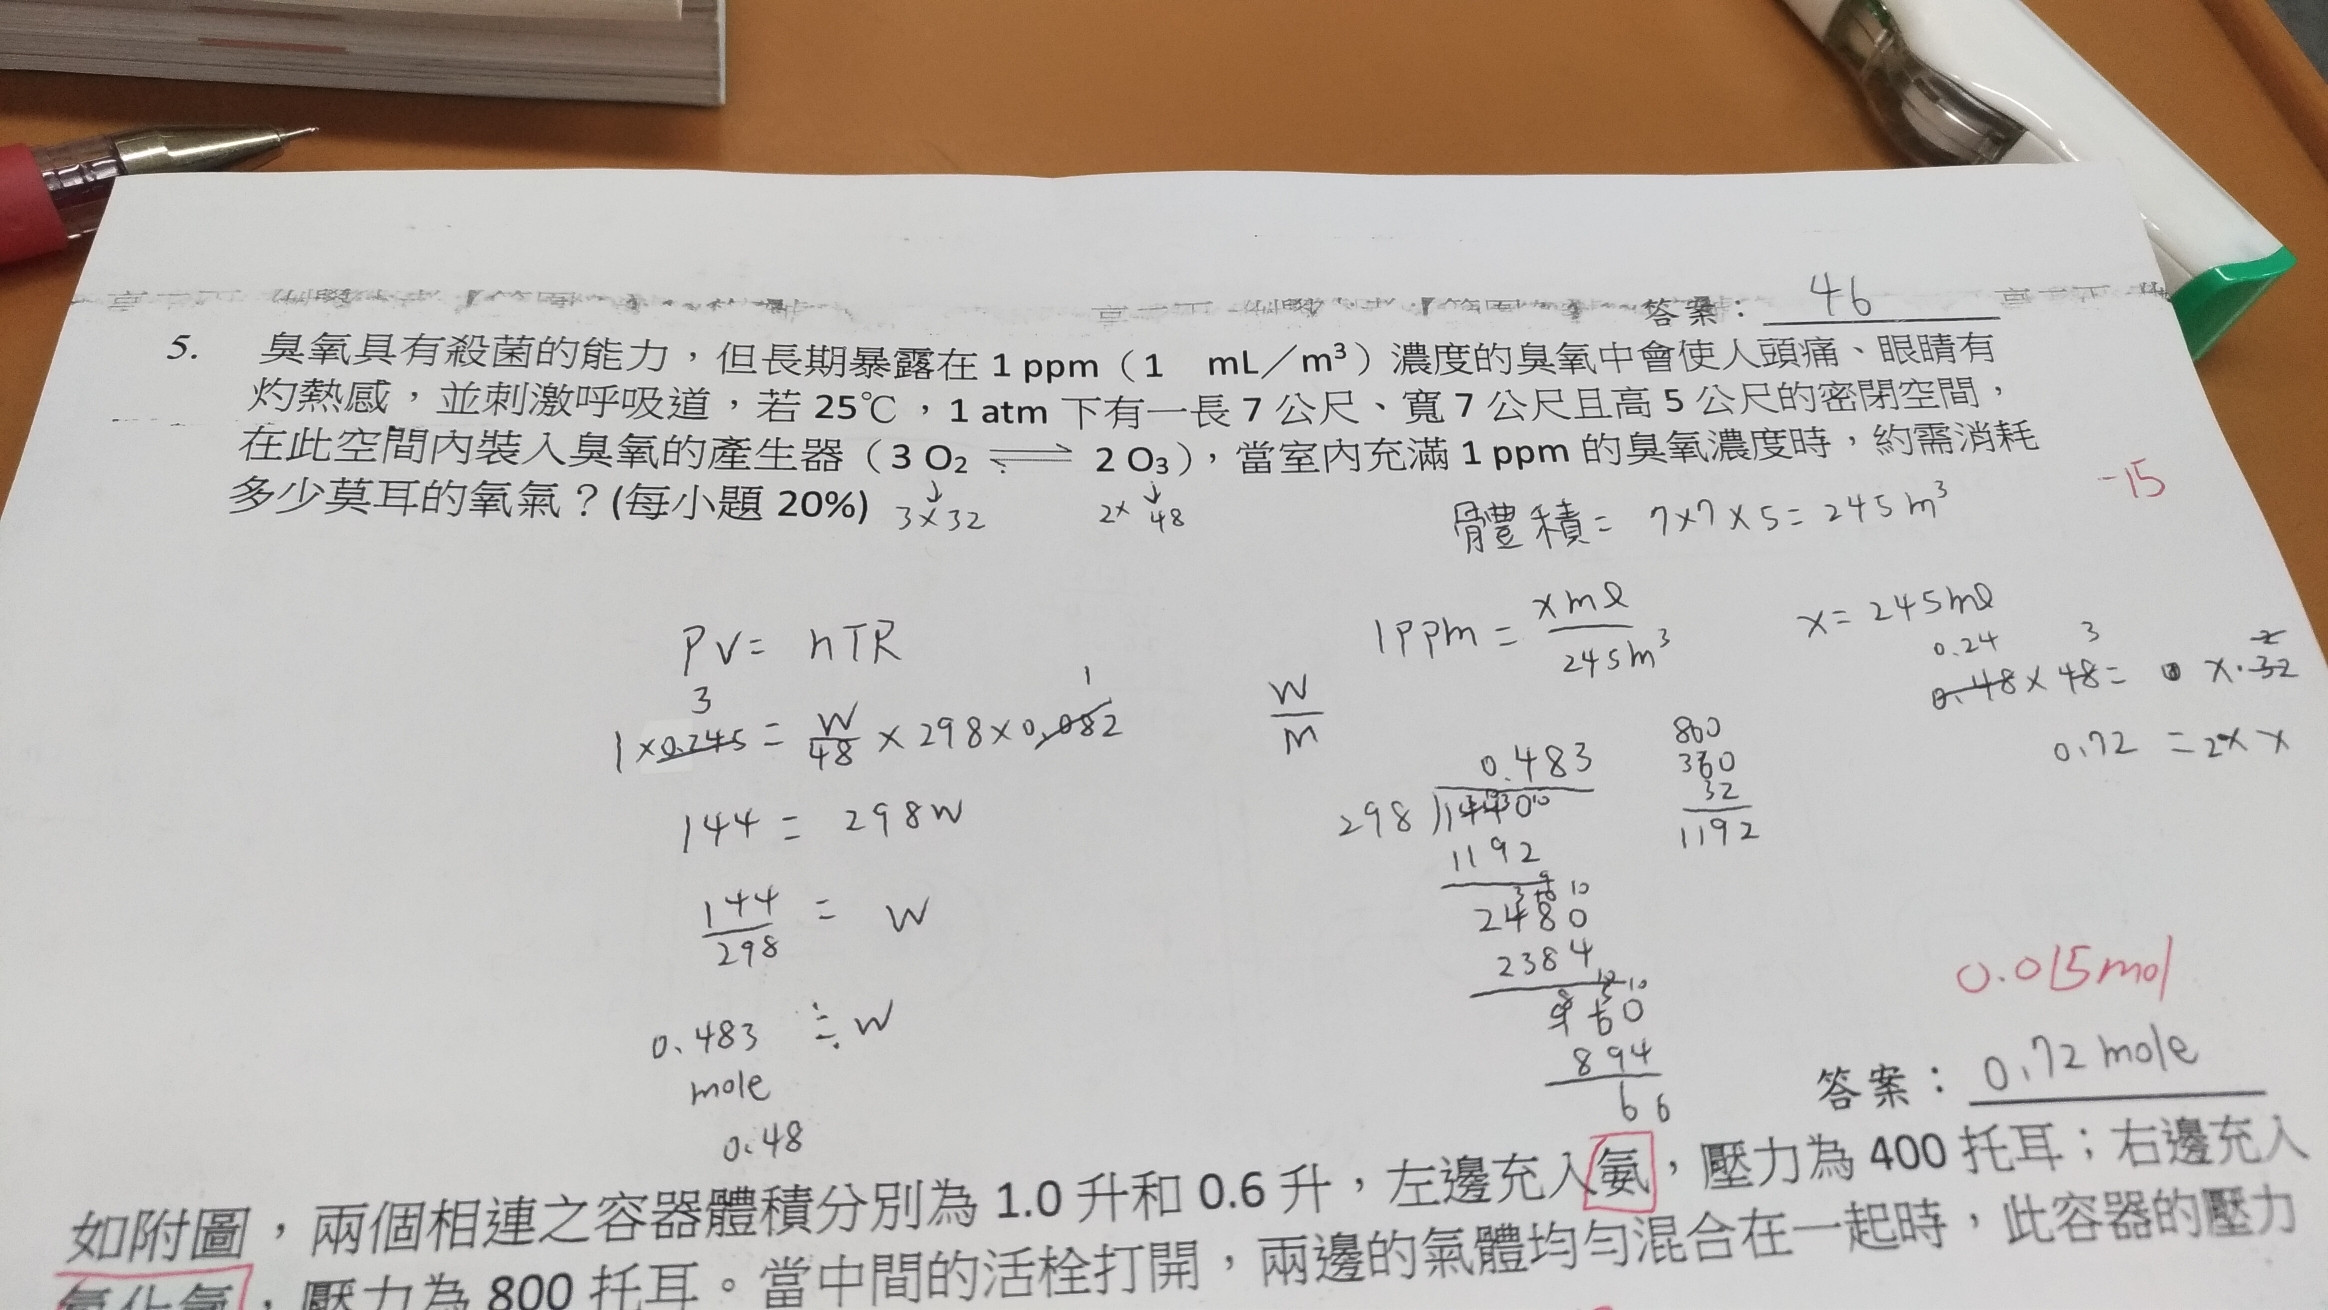 答案：46
5. 臭氧具有殺菌的能力，但長期暴露在 1 ppm（1 mL／m³）濃度的臭氧中會使人頭痛、眼睛有
灼熱感，並刺激呼吸道，若 25℃，1 atm 下有一長 7 公尺、寬 7 公尺且高 5 公尺的密閉空間，
在此空間內裝入臭氧的產生器（3 O₂ ⇌ 2 O₃），當室內充滿 1 ppm 的臭氧濃度時，約需消耗
多少莫耳的氧氣？(每小題 20%)
3×32
2×48
-15
體積= 7×7×5=245m³
PV= nTR
1ppm = xmℓ/245m³
x=245mℓ
3 1
1×0.245 = W/48 × 298×0.082
W/M
0.24 3 2
0.48×48= x.32
0.72 =2× x
144 = 298W
144/298 = W
0.483 ≒ W
mole
0.48
0.483
298
1192
2480
2384
960
894
66
860
360
32
1192
0.015mol
答案：0.72 mole
如附圖，兩個相連之容器體積分別為 1.0 升和 0.6 升，左邊充入氨，壓力為 400 托耳；右邊充入
氯化氫，壓力為 800 托耳。當中間的活栓打開，兩邊的氣體均勻混合在一起時，此容器的壓力